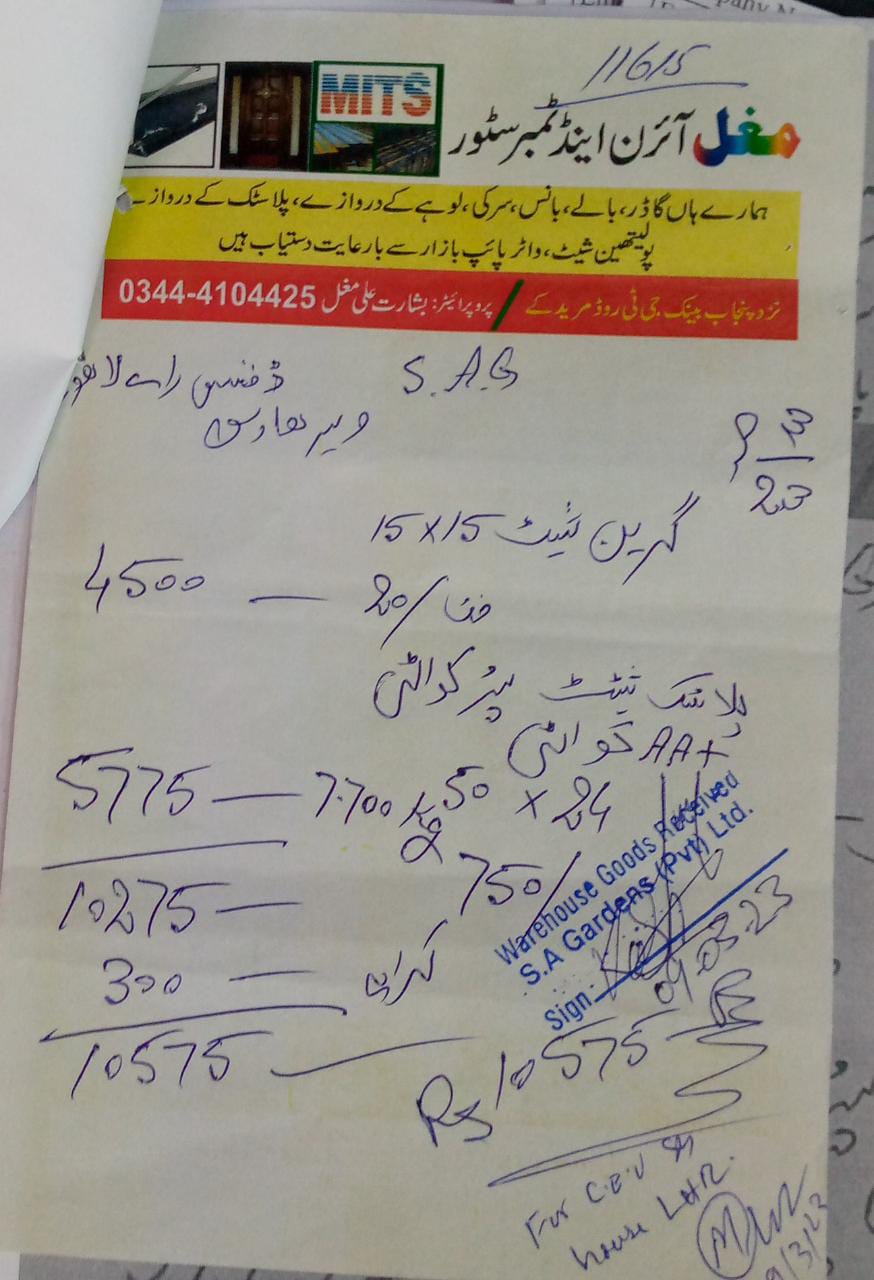 11615
MITS
مغل آئرن اینڈ ٹمبر سٹور
ہمارے ہاں گاڈر، بالے، بانس، سرکی، لوہے کے دروازے، پلاسٹک کے دروازے
پولیتھین شیٹ، واٹر پائپ بازار سے بارعایت دستیاب ہیں
نزد پنجاب بینک جی ٹی روڈ مریدکے / پروپرائیٹر: بشارت علی مغل 0344-4104425
S.A.G
ڈفنس
گرین نیٹ 15x15
20/ فٹ — 4500
پلاسٹک نیٹ سپر کوالٹی
AA+ کوالٹی
50 x 24 7.700 kg — 5775
750/
10275 —
کرایہ — 300
10575
Rs 10575
Warehouse Goods Received
S.A Gardens (Pvt) Ltd.
Sign:
09.03.23
For C.E.O
house LHR.
9/3/23